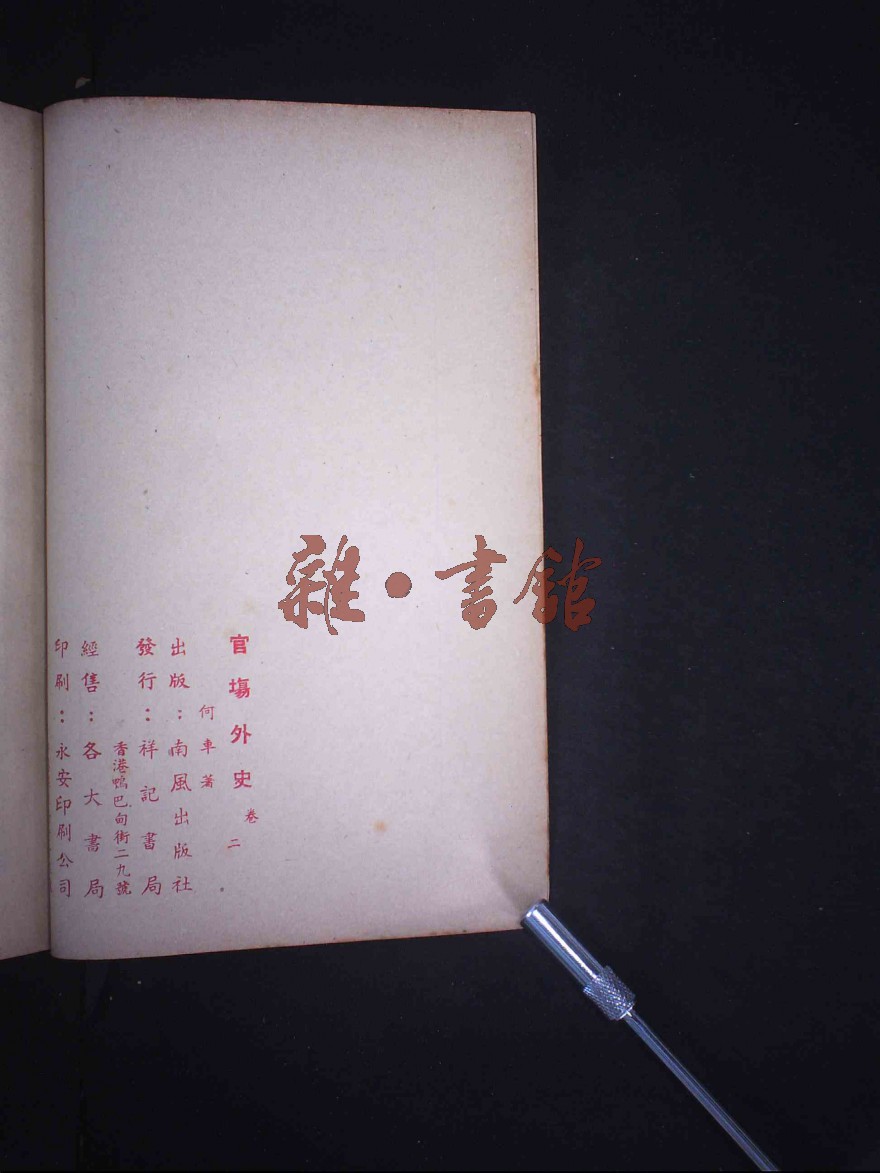 官塲外史 卷二
何車著
出版：南風出版社
發行：祥記書局
香港鴨巴甸街二九號
經售：各大書局
印刷：永安印刷公司
雜·書館